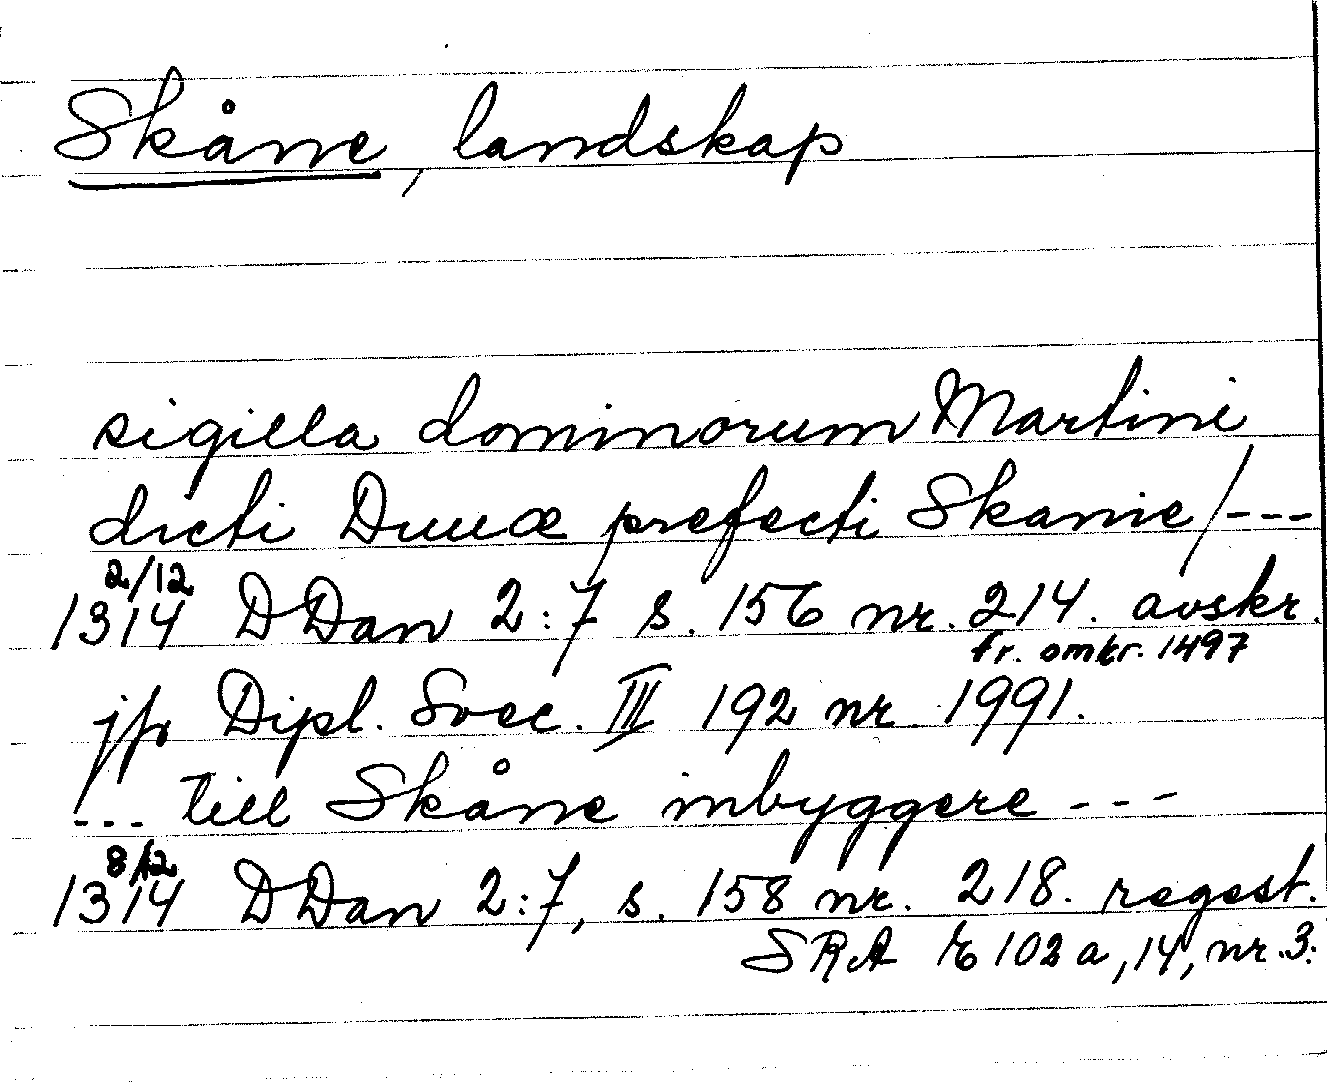 Skåne, landskap
sigilla dominorum Martini
dicti Duuæ prefecti Skanie/---
2/12
1314 DDan 2:7 s. 156 nr. 214. avskr.
fr. omkr. 1497
jfr Dipl. Svec. III 192 nr 1991.
--- till Skåne inbyggere ---
8/12
1314 DDan 2:7, s. 158 nr. 218. regest.
SRA E 102 a, 14, nr. 3.